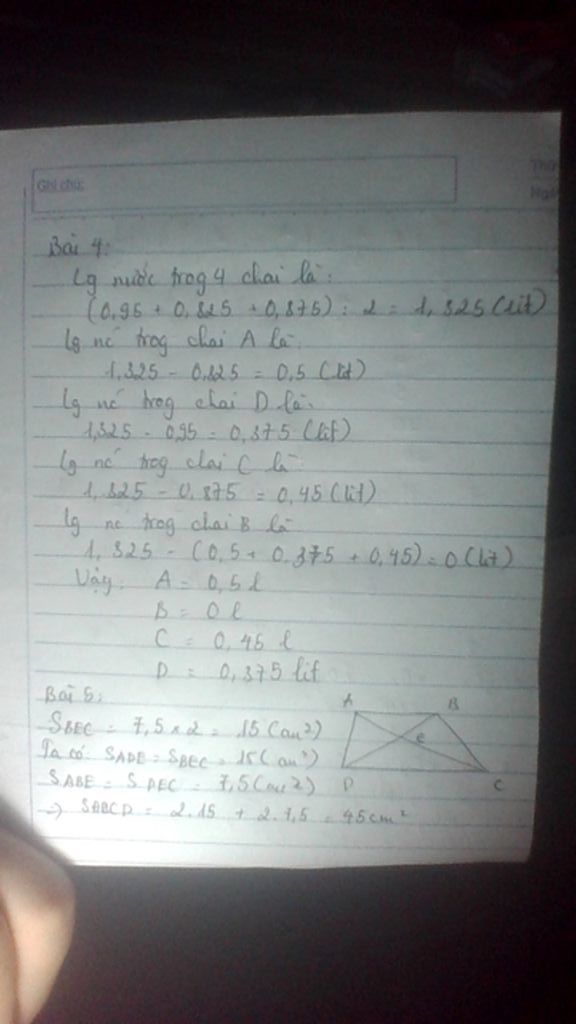 Ghi chú:
Thứ
Ngà
Bài 4:
Lg nước trog 4 chai là:
(0,95 + 0,825 + 0,875) : 2 = 1,325 (lit)
Lg nć trog chai A là:
1,325 - 0,825 = 0,5 (lit)
Lg nć trog chai D là:
1,325 - 0,95 = 0,375 (lit)
Lg nć trog chai C là
1,325 - 0,875 = 0,45 (lit)
Lg nc trog chai B là
1,325 - (0,5 + 0,375 + 0,45) = 0 (lit)
Vậy: A = 0,5 l
B = 0 l
C = 0,45 l
D = 0,375 lit
Bài 5:
A B
SBEC = 7,5 x 2 = 15 (cm²)
e
Ta có: SADE = SBEC = 15 (cm²)
SABE = SDEC = 7,5 (cm²)
D C
=> SABCD = 2.15 + 2.7,5 = 45 cm²